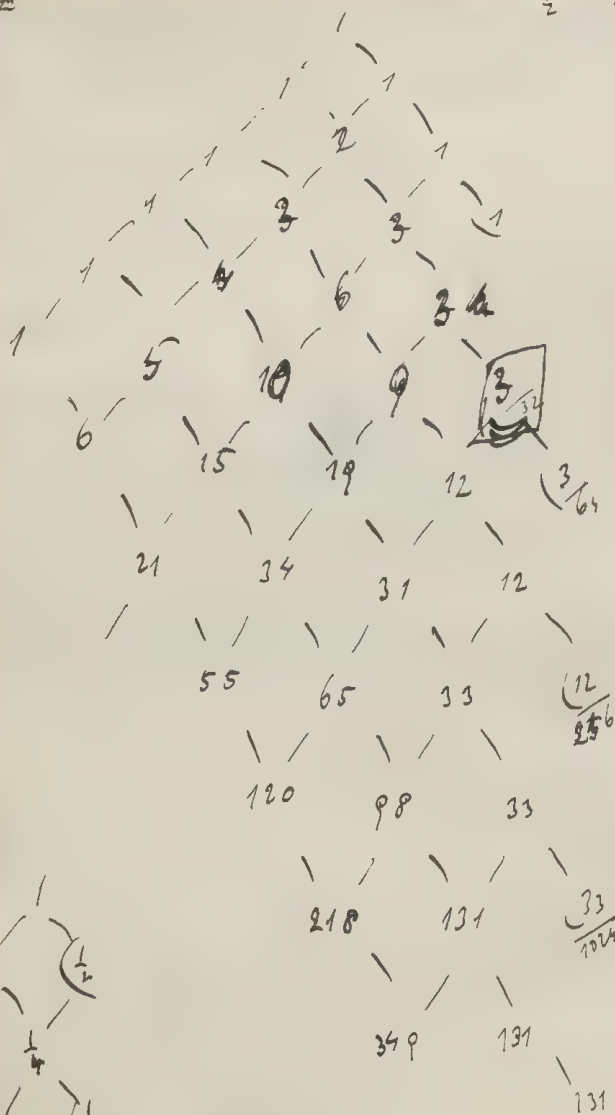 1
1
2
1 1
1 3 3 1
1 4 6 3 4
1 5 10 9 3
32
6 15 19 12 3/64
21 34 31 12
55 65 33 12/256
120 98 33
218 131 33/1024
1/2
349 131
1/4
131